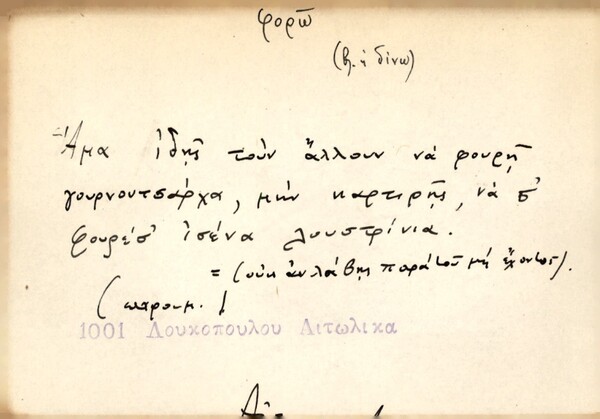 φορῶ
(βλ. ἡ δίνω)
Ἅμα ἰδῇς τοὺν ἄλλουν νὰ φουρῇ
γουρνουτσάρχα, μὴν καρτιρῇς, νὰ σ'
φουρέσ' ἰσένα λουστρίνια.
= (οὐκ ἂν λάβῃς παρὰ τοῦ μὴ ἔχοντος).
(παροιμ.)
1001 Λουκοπουλου Αιτωλικα